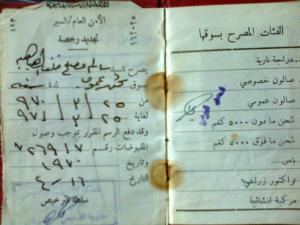 الأمن العام / السير
تجديد رخصة
يصرح السيد
سوق
من ٢٥ / ٢ / ٩٧٠
لغاية ٢٥ / ٢ / ٩٧١
وقد دفع الرسم المقرر بموجب وصول
المقبوضات رقم ٧٢٦٩١٧
وتاريخ ١٩٧٠
التاريخ ١٦ / ٤
سلطة الترخيص
الفئات المصرح بسوقها
دراجة نارية
صالون خصوصي
صالون عمومي
شحن ما دون ٥٠٠٠ كغم
شحن ما فوق ٥٠٠٠ كغم
باص
تراكتور زراعي
مركبة انشائية